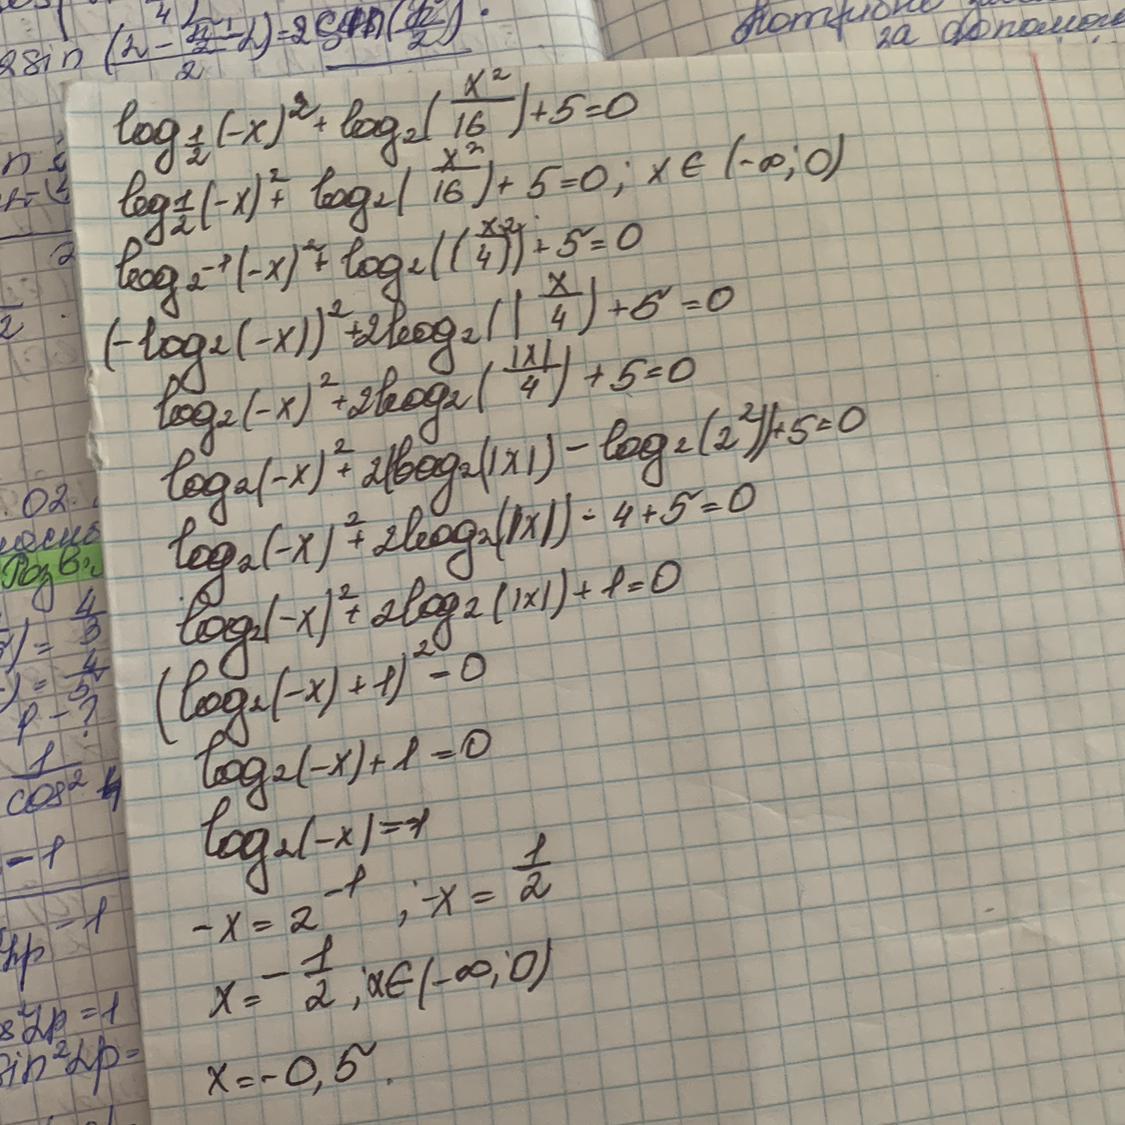 2sin (2-π/2-2)/2 = 2sin(π/2).
за допомог
log_{1/2}(-x)^2 + log_2(x^2/16) + 5 = 0
log_{1/2}(-x)^2 + log_2(x^2/16) + 5 = 0; x ∈ (-∞; 0)
log_{2^{-1}}(-x)^2 + log_2((x/4)^2) + 5 = 0
(-log_2(-x))^2 + 2log_2(|x/4) + 5 = 0
log_2(-x)^2 + 2log_2(|x|/4) + 5 = 0
log_2(-x)^2 + 2(log_2(|x|) - log_2(2^2)) + 5 = 0
log_2(-x)^2 + 2log_2(|x|) - 4 + 5 = 0
log_2(-x)^2 + 2log_2(|x|) + 1 = 0
(log_2(-x) + 1)^2 = 0
log_2(-x) + 1 = 0
log_2(-x) = -1
-x = 2^{-1}; -x = 1/2
x = -1/2; x ∈ (-∞; 0)
x = -0,5.
02.
Розв.
) = 4/3
) = 4/5
p - ?
1/cos^2
-1
= 1
s^2 2p = 1
sin^2 2p =